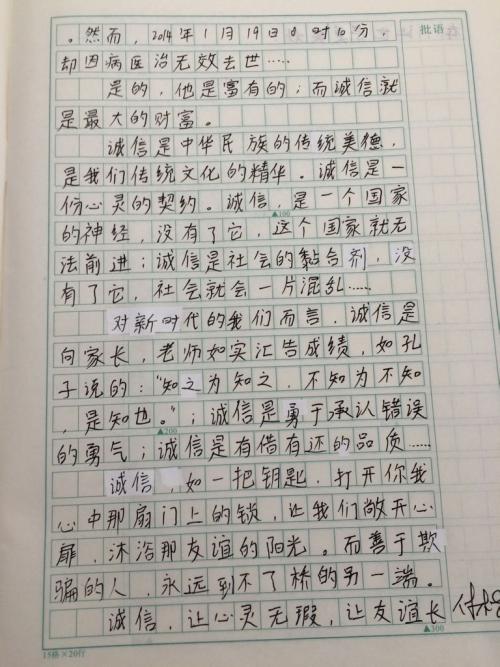 批语
。然而，2014年1月19日0时10分，
却因病医治无效去世……
是的，他是富有的；而诚信就
是最大的财富。
诚信是中华民族的传统美德，
是我们传统文化的精华。诚信是一
份心灵的契约。诚信，是一个国家
▲100
的神经，没有了它，这个国家就无
法前进；诚信是社会的黏合剂，没
有了它，社会就会一片混乱……
对新时代的我们而言，诚信是
向家长，老师如实汇告成绩，如孔
子说的："知之为知之，不知为不知
，是知也。"；诚信是勇于承认错误
▲200
的勇气；诚信是有借有还的品质……
诚信，如一把钥匙，打开你我
心中那扇门上的锁，让我们敞开心
扉，沐浴那友谊的阳光。而善于欺
骗的人，永远到不了桥的另一端。
诚信，让心灵无瑕，让友谊长
15格×20行
▲300